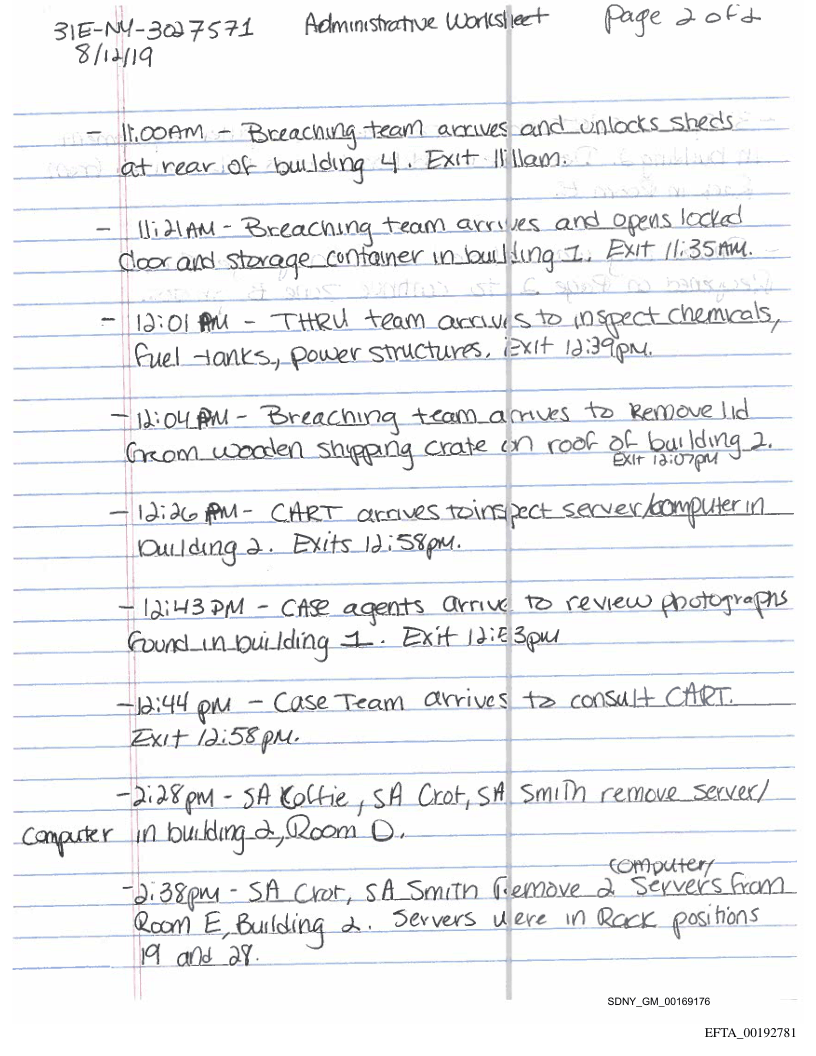 31E-NY-3027571 Administrative Worksheet Page 2 of 2
8/12/19
- 11:00AM - Breaching team arrives and unlocks sheds
at rear of building 4. Exit 11:11am.
- 11:21AM - Breaching team arrives and opens locked
door and storage container in building 1. Exit 11:35AM.
- 12:01 PM - THRU team arrives to inspect chemicals,
fuel tanks, power structures. Exit 12:39pm.
- 12:04 PM - Breaching team arrives to Remove lid
from wooden shipping crate on roof of building 2.
Exit 12:07pm
- 12:26 PM - CART arrives to inspect server/computer in
building 2. Exits 12:58pm.
- 12:43 PM - CASE agents arrive to review photographs
found in building 1. Exit 12:53pm
- 12:44 pm - Case Team arrives to consult CART.
Exit 12:58pm.
- 2:28pm - SA , SA Crot, SA Smith remove server/
computer in building 2, Room D.
computer/
- 2:38pm - SA Crot, SA Smith Remove 2 Servers from
Room E, Building 2. Servers were in Rack positions
19 and 28.
SDNY_GM_00169176
EFTA_00192781